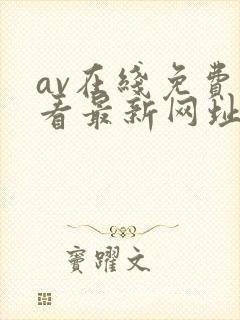 av在线免费
看最新网址
窦躍文